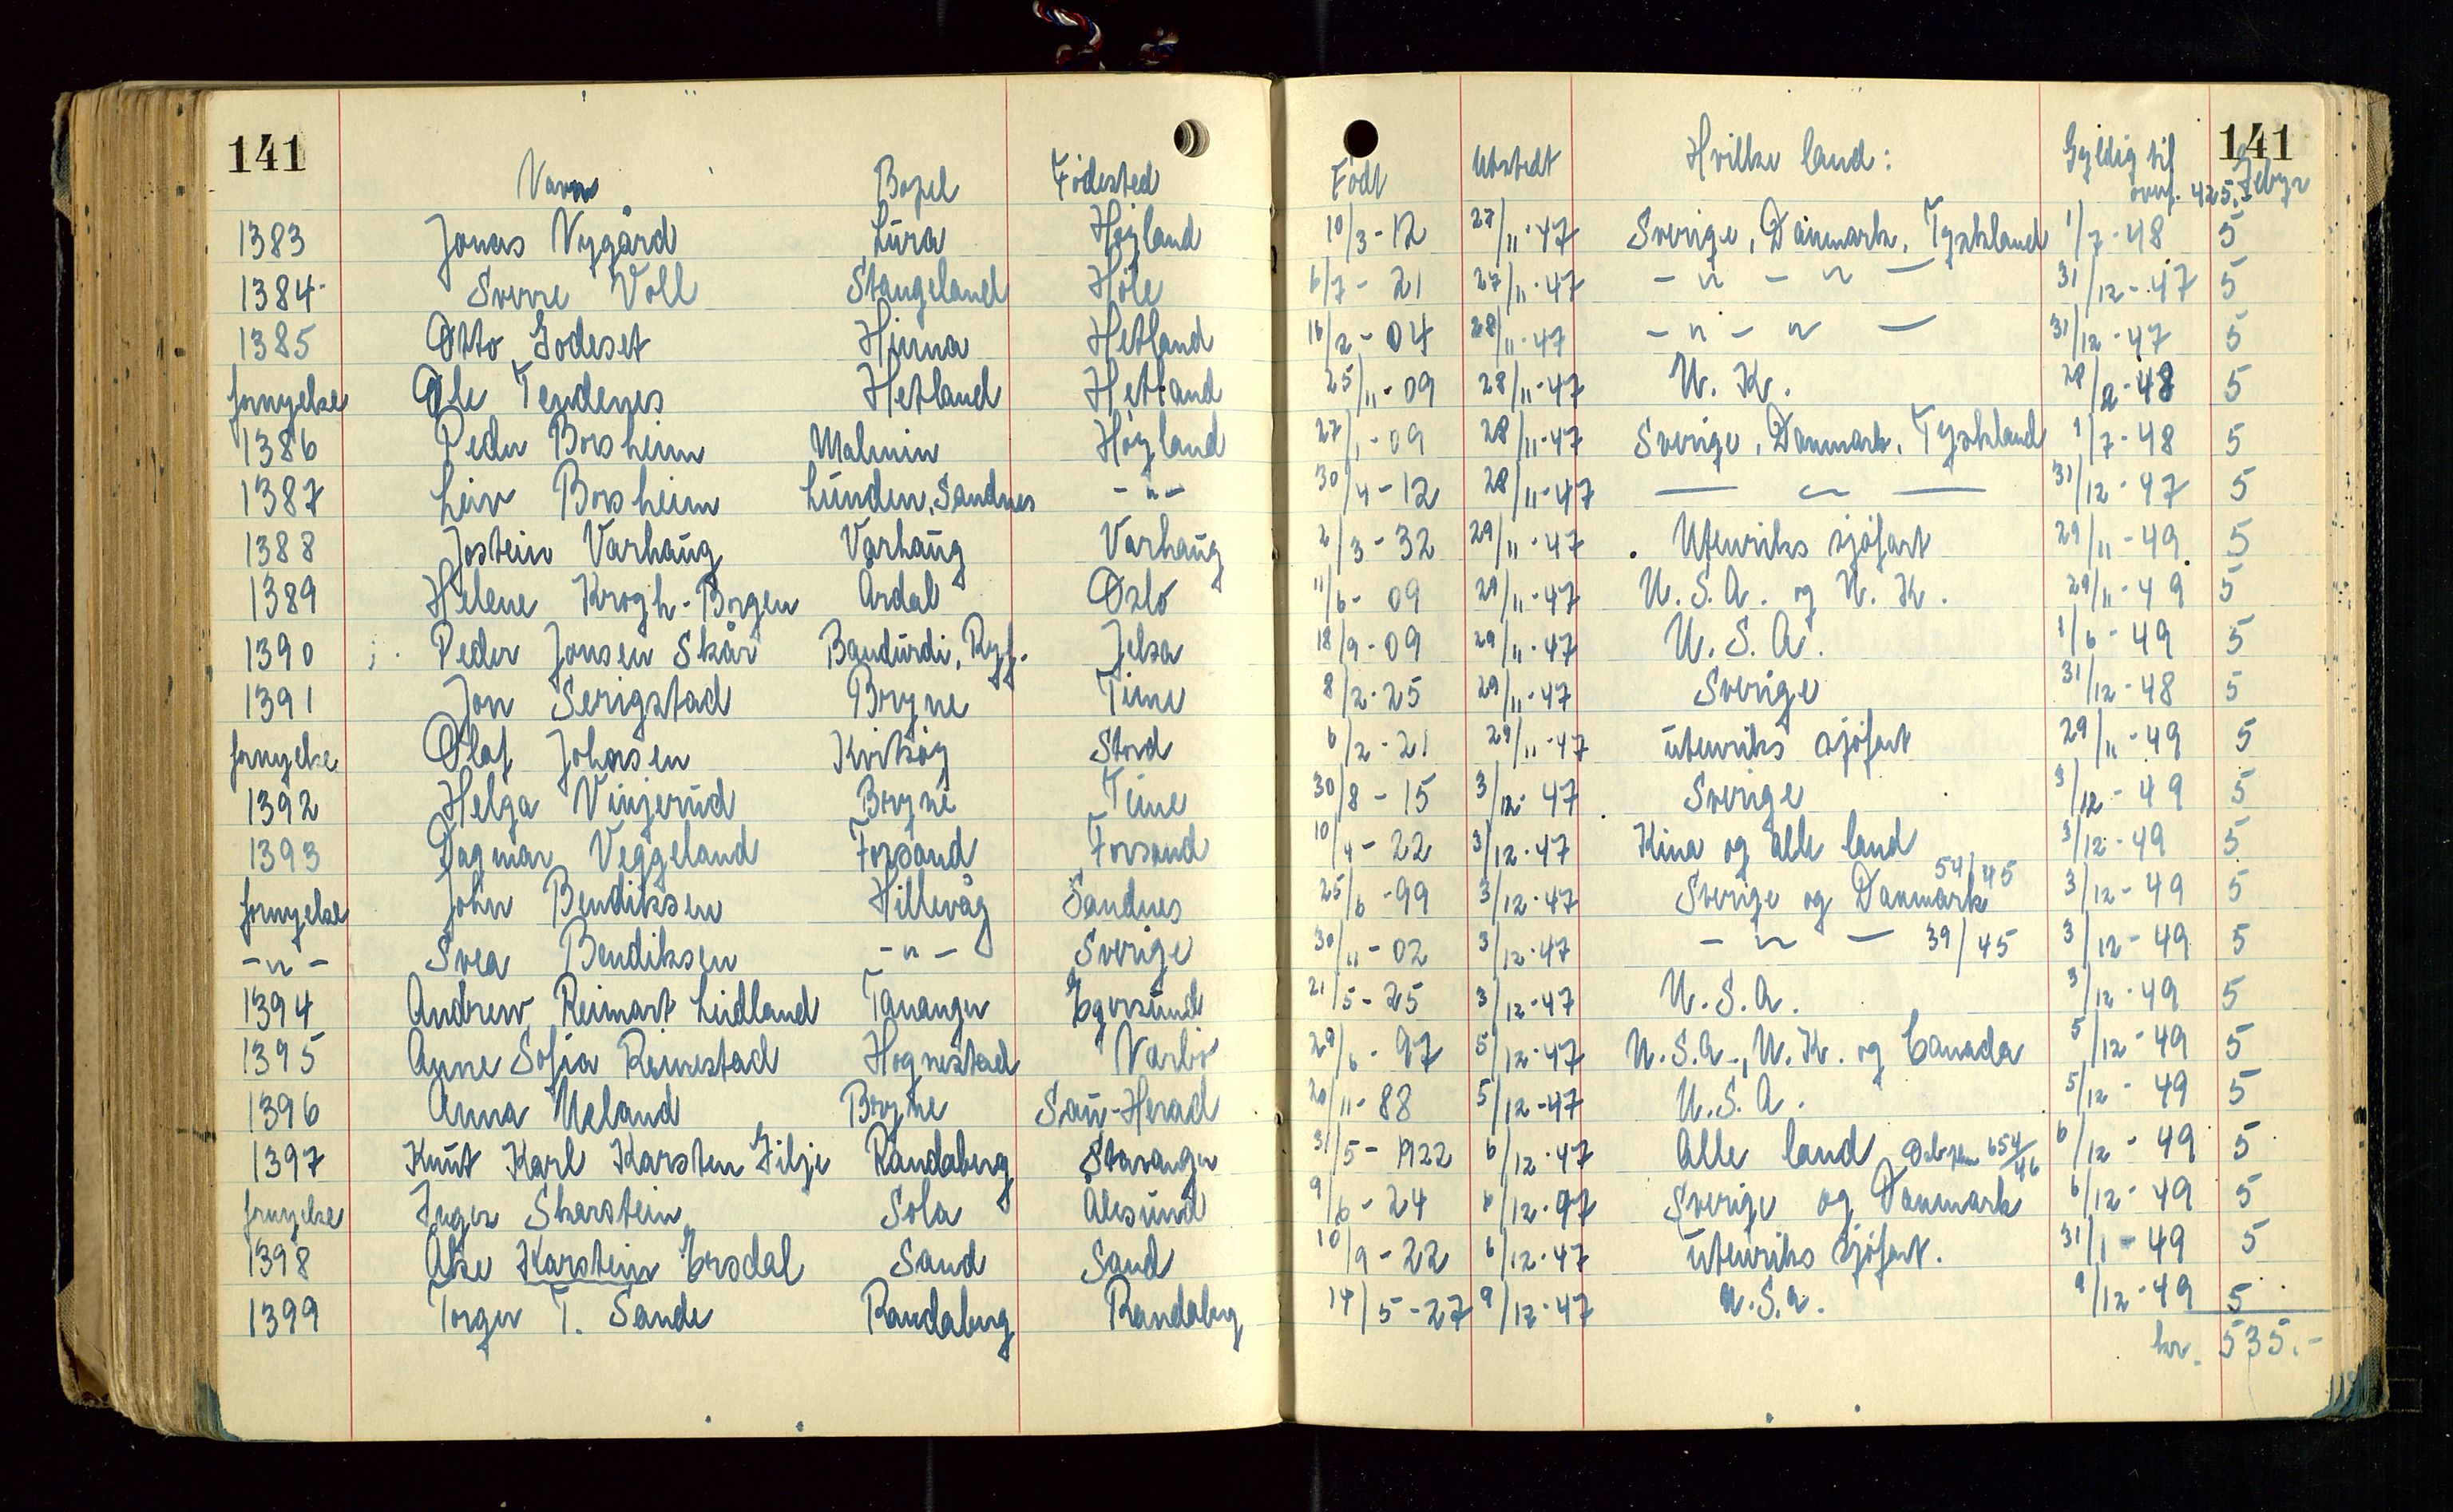 141 141
Navn Bopel Födested Födt Utstedt Hvilke land: Gyldig til Gebyr
overf. 425.-
1383 Jonas Nygård Lura Høyland 10/3-12 27/11-47 Sverige, Danmark, Tyskland 1/7-48 5
1384 Sverre Voll Stangeland Höle 6/7-21 27/11-47 -"- "- 31/12-47 5
1385 Otto Godeset Hinna Hetland 16/2-04 28/11-47 -"- "- 31/12-47 5
fornyelse Ole Tendenes Hetland Hetland 25/11-09 28/11-47 U.K. 28/2-48 5
1386 Peder Borsheim Malmin Høyland 27/1-09 28/11-47 Sverige, Danmark, Tyskland 1/7-48 5
1387 Leiv Borsheim Lunden, Sandnes -"- 30/4-12 28/11-47 — " — 31/12-47 5
1388 Jostein Varhaug Varhaug Varhaug 2/3-32 29/11-47 Utenriks sjöfart 29/11-49 5
1389 Helene Krogh-Borgen Årdal Oslo 11/6-09 29/11-47 U.S.A. og U.K. 29/11-49 5
1390 Peder Jonsen Skår Bandurdi, Ryf. Jelsa 18/9-09 29/11-47 U.S.A. 1/6-49 5
1391 Jon Serigstad Bryne Time 8/2-25 29/11-47 Sverige 31/12-48 5
fornyelse Olaf Johnsen Kvitsöy Stord 6/2-21 29/11-47 utenriks sjöfart 29/11-49 5
1392 Helga Vinjerud Bryne Time 30/8-15 3/12-47 Sverige 3/12-49 5
1393 Dagmar Veggeland Forsand Forsand 10/4-22 3/12-47 Kina og alle land 3/12-49 5
fornyelse John Bendiksen Hillevåg Sandnes 25/6-99 3/12-47 Sverige og Danmark 54/45 3/12-49 5
-"- Svea Bendiksen -"- Sverige 30/11-02 3/12-47 -"- 39/45 3/12-49 5
1394 Andrew Reimart Leidland Tananger Egersund 21/5-25 3/12-47 U.S.A. 3/12-49 5
1395 Anne Sofia Reinestad Hognestad Narbö 29/6-97 5/12-47 U.S.A., U.K. og Canada 5/12-49 5
1396 Anna Ueland Bryne Sau-Herad 20/11-88 5/12-47 U.S.A. 5/12-49 5
1397 Knut Karl Karsten Gilje Randaberg Stavanger 31/5-1922 6/12-47 Alle land 654/46 6/12-49 5
fornyelse Inger Skarstein Sola Ålesund 9/6-24 6/12-47 Sverige og Danmark 6/12-49 5
1398 Åke Karstein Ersdal Sand Sand 10/9-22 6/12-47 utenriks sjöfart. 31/1-49 5
1399 Torger T. Sande Randaberg Randaberg 14/5-27 9/12-47 U.S.A. 9/12-49 5
kr. 535.-